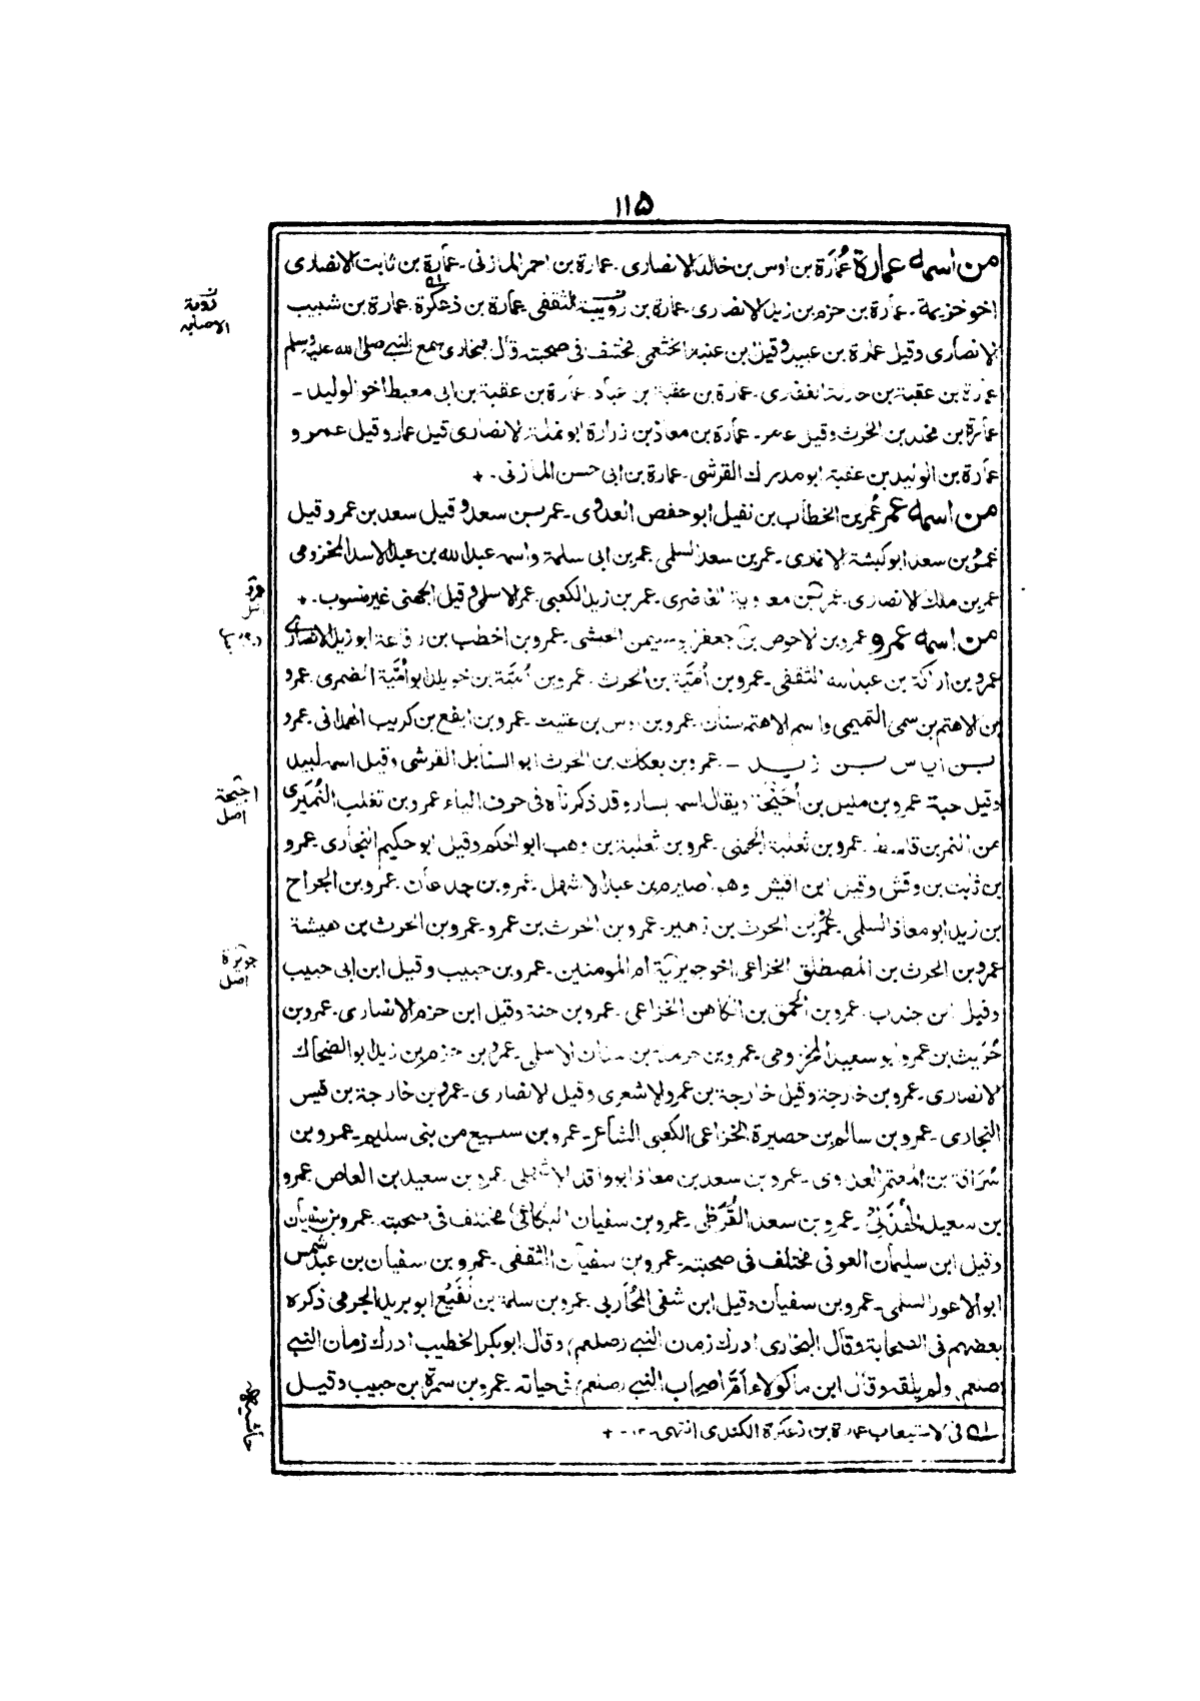 ١١۵
من اسمه عمارة عُمَارَة بن اوس بن خالد الانصارى۔ عمارة بن احمر المازنى۔ عمارة بن ثابت الانصارى
اخو خزيمة۔ عمارة بن حزم بن زيد الانصارى۔ عمارة بن رويبة الثقفى عمارة بن زعكرة۔ عمارة بن شبيب
الانصارى وقيل عمارة بن عبيد وقيل بن عتبة الخثعمى مختلف فى صحبته قال البخارى سمع النبى صلى الله عليه وسلم
عمارة بن عقبة بن حارثة الغفارى۔ عمارة بن عقبة بن عباد۔ عمارة بن عقبة بن ابى معيط اخو الوليد۔
عمارة بن مخلد بن الحرث وقيل عامر۔ عمارة بن معاذ بن زرارة ابو نملة الانصارى قيل عمار وقيل عمرو
عمارة بن الوليد بن عقبة ابو مدرك القرشى۔ عمارة بن ابى حسن المازنى۔ +
من اسمه عمر عُمر بن الخطاب بن نفيل ابو حفص العدوى۔ عمر بن سعد وقيل سعد بن عمر وقيل
عمرو بن سعد ابو كبشة الانمارى۔ عمر بن سعد السلمى عمر بن ابى سلمة واسمه عبد الله بن عبد الاسد المخزومى
عمر بن ملك الانصارى۔ عمر بن معوية الغاضرى۔ عمر بن زيد الكعبى۔ عمر الاسلمى وقيل الجهنى غير منسوب۔ +
من اسمه عمرو عمرو بن الاحوص بن جعفر عمرو بن اخطب بن رفاعة ابو زيد الانصارى
عمرو بن اراكة بن عبد الله الثقفى۔ عمرو بن أُمَيَّة بن الحرث۔ عمرو بن أُمَيَّة بن خويلد ابو أُمَيَّة الضمرى۔ عمرو
بن الاهتم بن سمى التميمى واسم الاهتم سنان۔ عمرو بن اوس بن عتيك۔ عمرو بن ايفع بن كريب الهمدانى۔ عمرو
بن اياس بن زيد۔ عمرو بن بعكك بن الحرث ابو السنابل القرشى وقيل اسمه لبيد
وقيل حبة۔ عمرو بن مليس بن ويقال اسمه يسار وقد ذكرناه فى حرف الياء عمرو بن تغلب النُمَيرى
من النمر بن قاسط۔ عمرو بن ثعلبة الجهنى۔ عمرو بن ثعلبة بن وهب ابو الحكم وقيل ابو حكيم النجارى۔ عمرو
بن ثابت بن وقش وقيل ابن اقيش وهو اصيرم بن عبد الاشهل۔ عمرو بن جدعان۔ عمرو بن الجراح
بن زيد ابو معاذ السلمى۔ عمرو بن الحرث بن زهير۔ عمرو بن الحرث بن عمرو۔ عمرو بن الحرث بن هيشة
عمرو بن الحرث بن المصطلق الخزاعى اخو جويرية ام المومنين۔ عمرو بن حبيب وقيل ابن ابى حبيب
وقيل ابن جندب۔ عمرو بن الحمق بن الكاهن الخزاعى۔ عمرو بن حنة وقيل ابن حزم الانصارى۔ عمرو بن
حُريث بن عمرو ابو سعيد المخزومى۔ عمرو بن حرملة بن سنان الاسلمى۔ عمرو بن حزم بن زيد ابو الضحاك
الانصارى۔ عمرو بن خارجة وقيل خارجة بن عمرو الاشعرى وقيل الانصارى۔ عمرو بن خارجة بن قيس
النجارى۔ عمرو بن سالم بن حصيرة الخزاعى الكعبى الشاعر۔ عمرو بن سبيع من بنى سليم۔ عمرو بن
سُرَاقة بن المعتمر العدوى۔ عمرو بن سعد بن معاذ ابو واقد الاشهلى۔ عمرو بن سعيد بن العاص عمرو
بن سعيد عمرو بن سعد القُرَظى عمرو بن سفيان البكائى مختلف فى صحبته۔ عمرو بن سفيان
وقيل ابن سليمان العوفى مختلف فى صحبته۔ عمرو بن سفيان الثقفى۔ عمرو بن سفيان بن عبد شمس
ابو الاعور السلمى۔ عمرو بن سفيان وقيل ابن شفى المُحاربى۔ عمرو بن سلمة بن نُفَيع ابو بريد الجرمى ذكره
بعضهم فى الصحابة وقال البخارى ادرك زمان النبى (صلعم) وقال ابو بكر الخطيب ادرك زمان النبى
صلعم ولم يلقه وقال ابن ماكولاء اَمَّ اصحاب النبى (صلعم) فى حياته۔ عمرو بن سمرة بن حبيب وقيل
فى الاستيعاب عمارة بن زعكرة الكندى انتهى۔ ١٢۔ +
الاصابه
اصل
جويرة
اصل
حاشيه